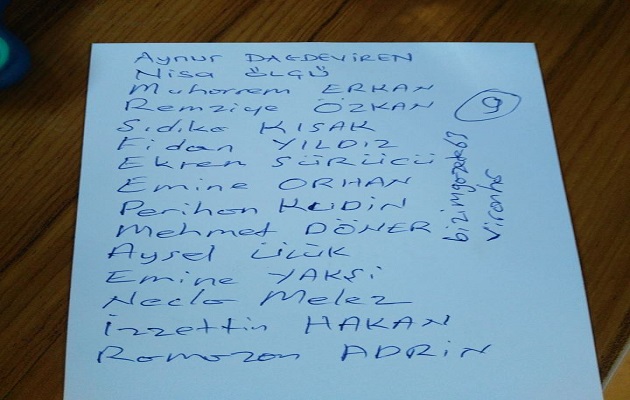 Aynur DAĞDEVİREN
Nisa ÖLGÜ
Muharrem ERKAN
Remziye ÖZKAN
Sıdıka KISAK
Fidan YILDIZ
Ekrem SÜRÜCÜ
Emine ORHAN
Perihan KUDİN
Mehmet DÖNER
Aysel ÜLÜK
Emine YAKŞİ
Necla Melez
İzzettin HAKAN
Ramazan ADRİN
bizimgazete63